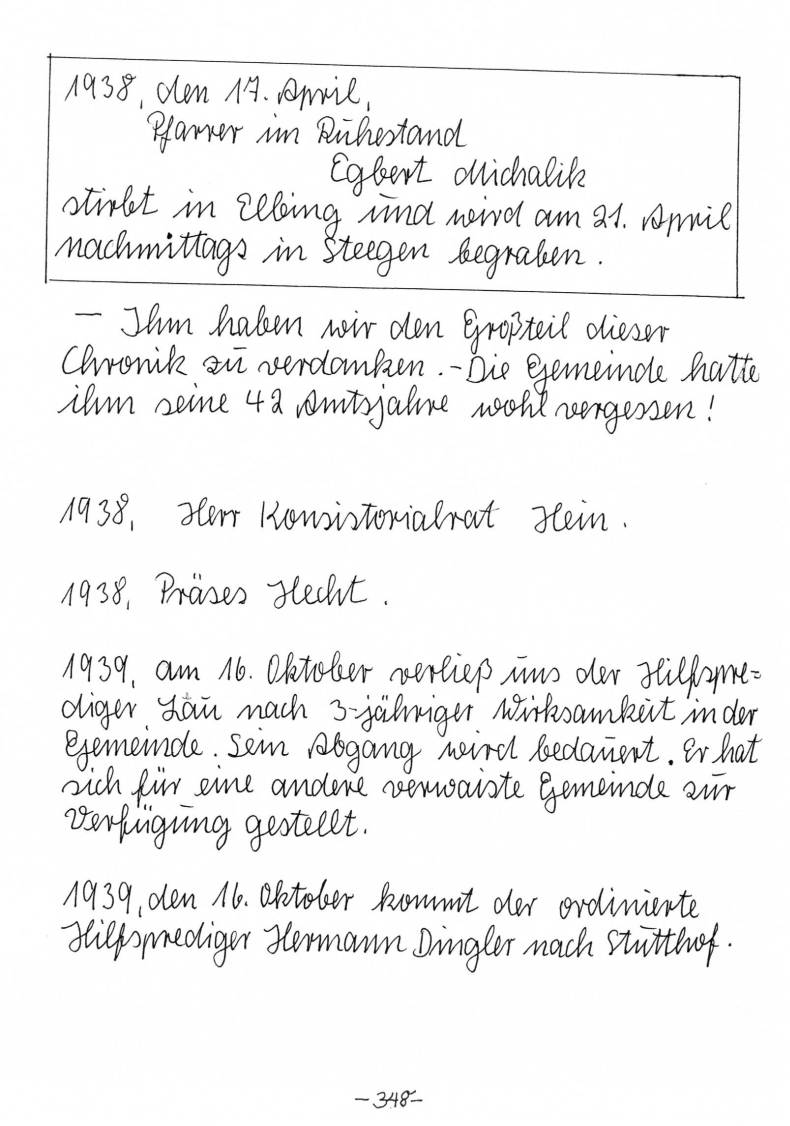 1938, den 17. April,
Pfarrer im Ruhestand
Egbert Michalik
stirbt in Elbing und wird am 21. April
nachmittags in Steegen begraben.
— Ihm haben wir den Großteil dieser
Chronik zu verdanken. - Die Gemeinde hatte
ihm seine 42 Amtsjahre wohl vergessen!
1938, Herr Konsistorialrat Hein.
1938, Präses Hecht.
1939, am 16. Oktober verließ uns der Hilfspre=
diger Lau nach 3-jähriger Wirksamkeit in der
Gemeinde. Sein Abgang wird bedauert. Er hat
sich für eine andere verwaiste Gemeinde zur
Verfügung gestellt.
1939, den 16. Oktober kommt der ordinierte
Hilfsprediger Hermann Dingler nach Stutthof.
-348-